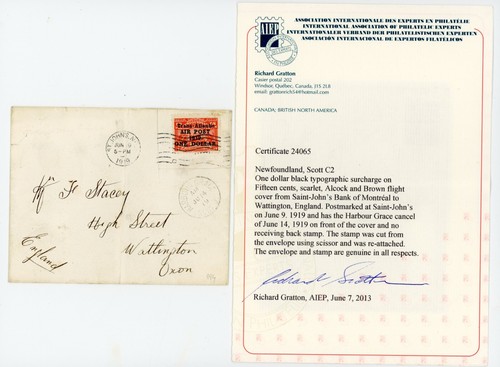 ST JOHN'S, N.F.
JUN 9
5-PM
1919
Trans-Atlantic
AIR POST
1919
ONE DOLLAR.
Mr F. Stacey
High Street
Wattington
Oxon
England
ASSOCIATION INTERNATIONALE DES EXPERTS EN PHILATÉLIE
INTERNATIONAL ASSOCIATION OF PHILATELIC EXPERTS
INTERNATIONALER VERBAND DER PHILATELISTISCHEN EXPERTEN
ASOCIACIÓN INTERNACIONAL DE EXPERTOS FILATÉLICOS
AIEP
Richard Gratton
Casier postal 202
Windsor, Québec, Canada, J1S 2L8
email: grattonrich54@hotmail.com
CANADA: BRITISH NORTH AMERICA
Certificate 24065
Newfoundland, Scott C2
One dollar black typographic surcharge on
Fifteen cents, scarlet, Alcock and Brown flight
cover from Saint-John's Bank of Montréal to
Wattington, England. Postmarked at Saint-John's
on June 9. 1919 and has the Harbour Grace cancel
of June 14, 1919 on front of the cover and no
receiving back stamp. The stamp was cut from
the envelope using scissor and was re-attached.
The envelope and stamp are genuine in all respects.
Richard Gratton
Richard Gratton, AIEP, June 7, 2013